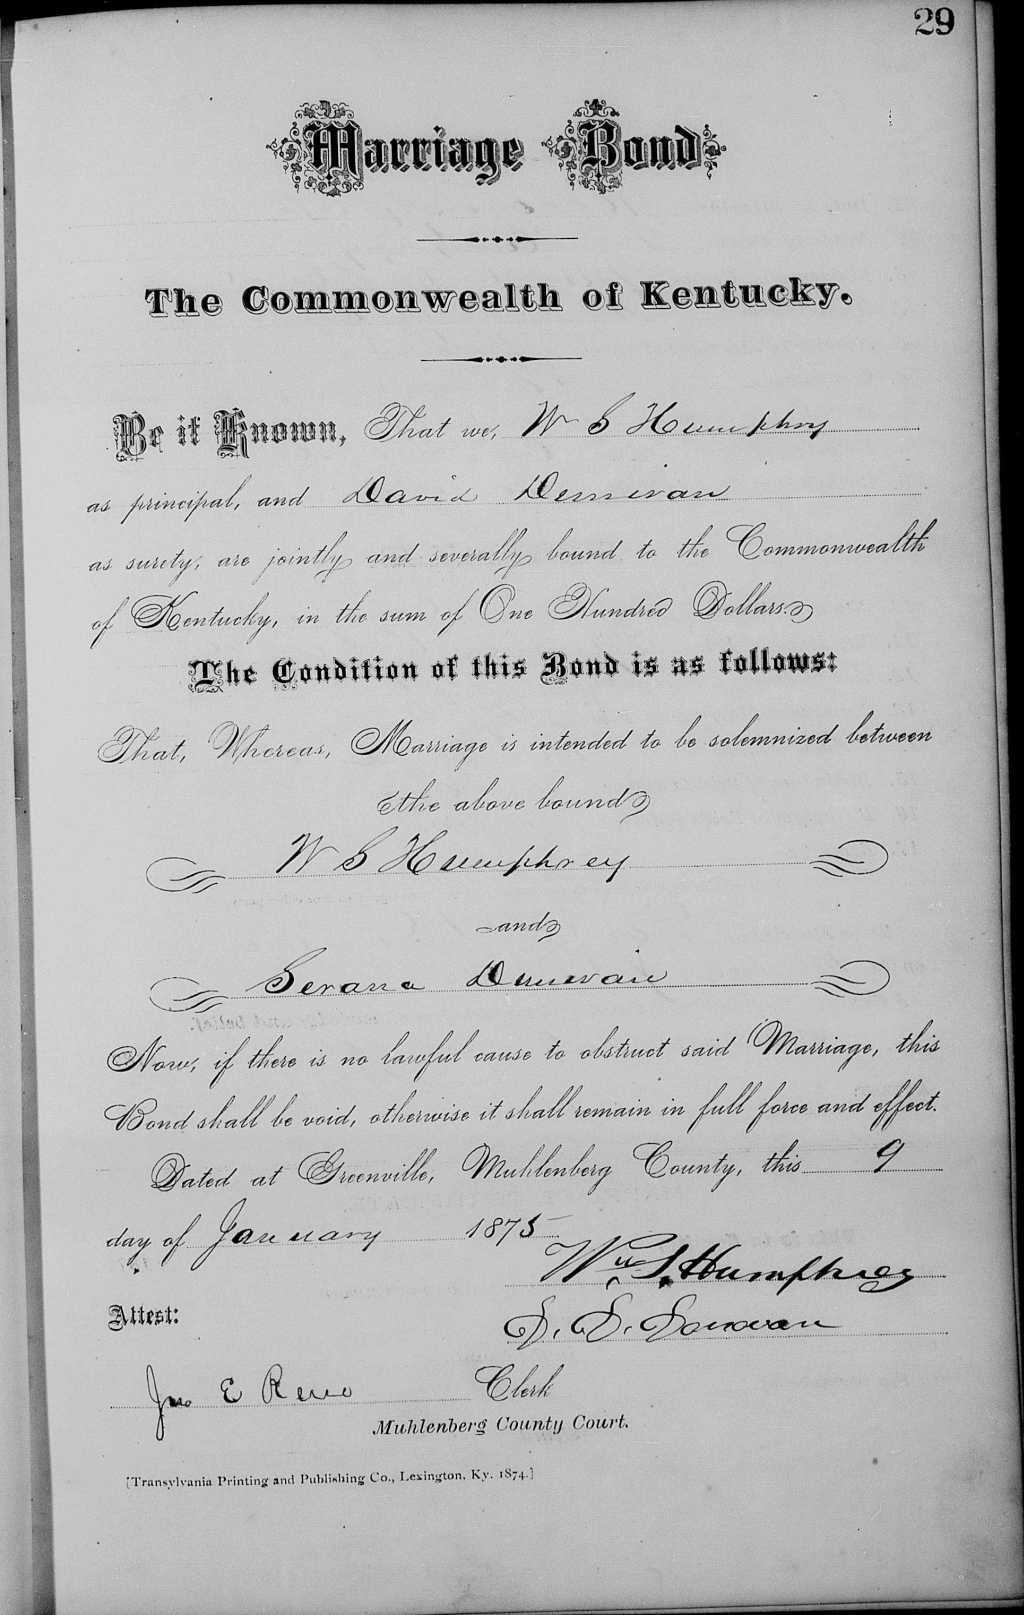 29
Marriage Bond
The Commonwealth of Kentucky.
Be it Known, That we, W S Humphrey
as principal, and David
as surety, are jointly and severally bound to the Commonwealth
of Kentucky, in the sum of One Hundred Dollars.
The Condition of this Bond is as follows:
That, Whereas, Marriage is intended to be solemnized between
the above bound
W S Humphrey
and
Serana
Now, if there is no lawful cause to obstruct said Marriage, this
Bond shall be void, otherwise it shall remain in full force and effect.
Dated at Greenville, Muhlenberg County, this 9
day of January 1875
Wm. S. Humphrey
Attest:
D. D. Donovan
Jno E Reno Clerk
Muhlenberg County Court.
[Transylvania Printing and Publishing Co., Lexington, Ky. 1874.]